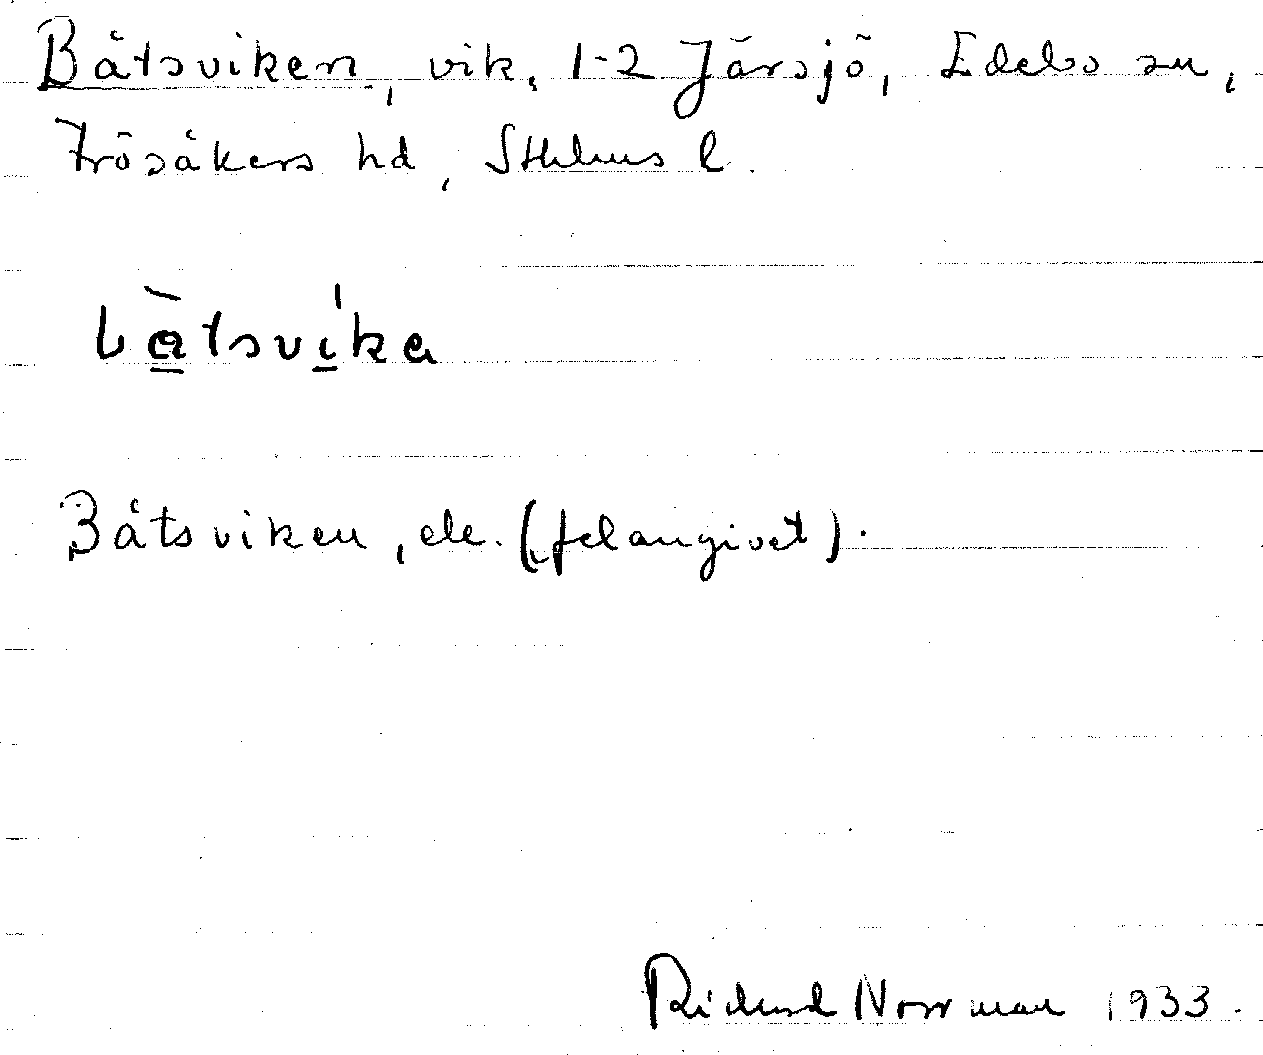 Båtsviken, vik, 1-2 Järsjö, Edebo sn,
Frösåkers hd, Sthlms l.
båtsvika
Båtsviken, ek. (felangivet).
Richard Norrman 1933.